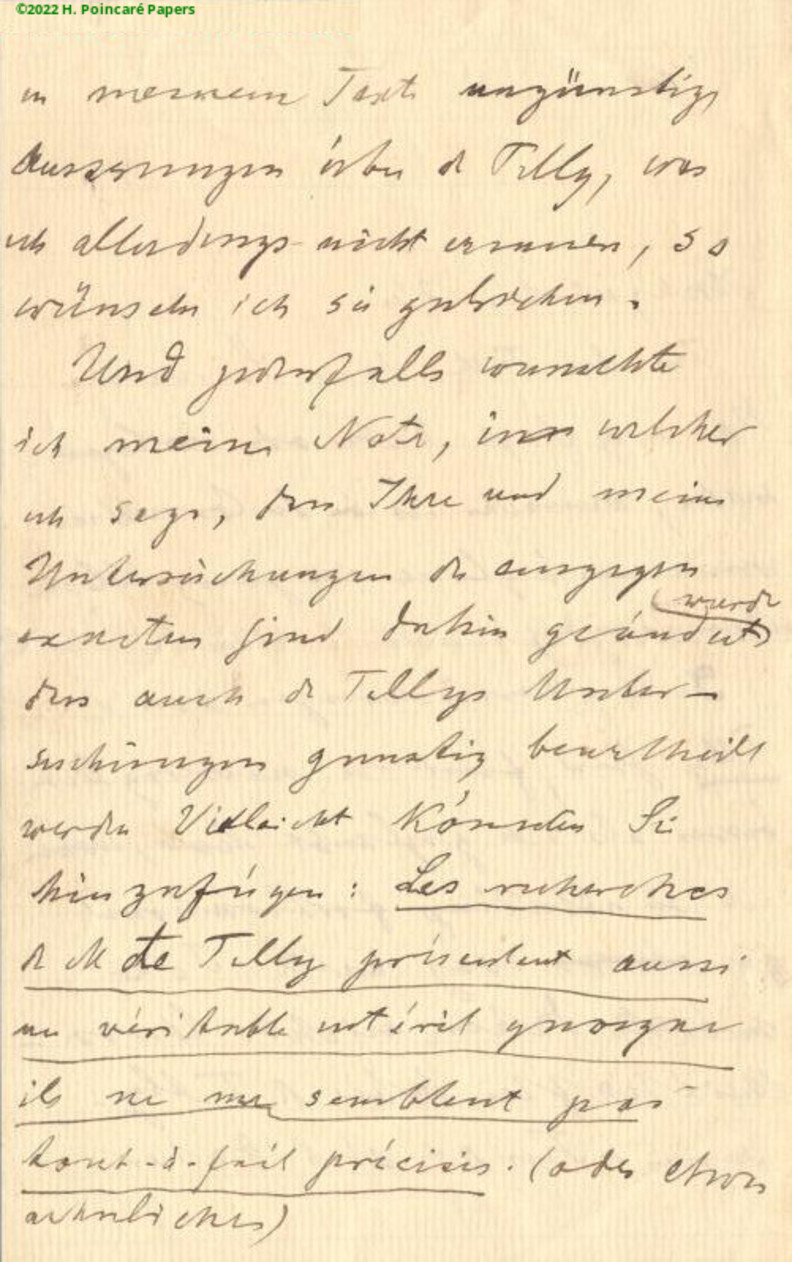 ©2022 H. Poincaré Papers
in meinem Text ungünstige
Äusserungen über de Tilly, was
ich allerdings nicht erinnere, so
wünsche ich sie gestrichen.
Und jedenfalls wünschte
ich meine Note, in welcher
ich sage, dass Ihre und meine
Untersuchungen die einzigen
wurde
exacten sind dahin geändert
dass auch de Tillys Unter-
suchungen günstig beurtheilt
werden Vielleicht könnten Sie
hinzufügen: Les recherches
de M de Tilly présentent aussi
un véritable intérêt quoique
ils ne me semblent pas
tout-à-fait précises. (oder etwas
aehnliches)